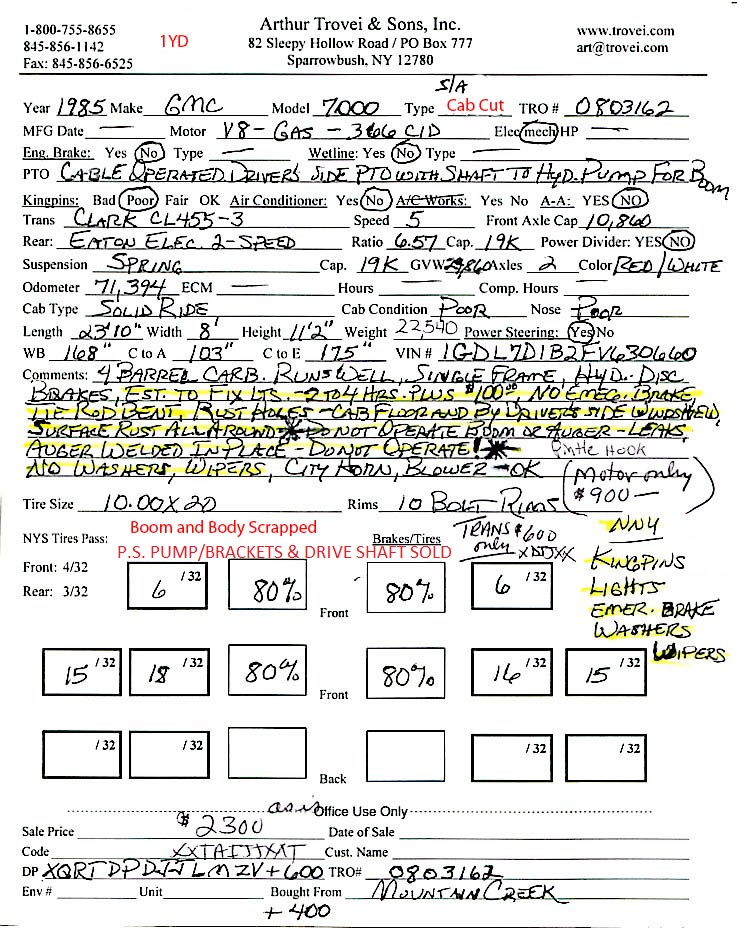 1-800-755-8655
845-856-1142
Fax: 845-856-6525
1YD
Arthur Trovei & Sons, Inc.
82 Sleepy Hollow Road / PO Box 777
Sparrowbush, NY 12780
www.trovei.com
art@trovei.com
S/A
Year 1985 Make GMC Model 7000 Type Cab Cut TRO # 0803162
MFG Date — Motor V8 - GAS - 366 CID Elec mech HP —
Eng. Brake: Yes No Type — Wetline: Yes No Type —
PTO CABLE OPERATED DRIVERS SIDE PTO WITH SHAFT TO HYD. PUMP FOR BOOM
Kingpins: Bad Poor Fair OK Air Conditioner: Yes No A/C Works: Yes No A-A: YES NO
Trans CLARK CL455-3 Speed 5 Front Axle Cap 10,860
Rear: EATON ELEC. 2-SPEED Ratio 6.57 Cap. 19K Power Divider: YES NO
Suspension SPRING Cap. 19K GVW 29,860 Axles 2 Color RED/WHITE
Odometer 71,394 ECM — Hours — Comp. Hours —
Cab Type SOLID RIDE Cab Condition POOR Nose POOR
Length 23'10" Width 8' Height 11'2" Weight 22,540 Power Steering: Yes No
WB 168" C to A 103" C to E 175" VIN # 1GDL7D1B2FV630660
Comments: 4 BARREL CARB. RUNS WELL, SINGLE FRAME, HYD. DISC
BRAKES, EST. TO FIX LTS. - 2 TO 4 HRS. PLUS $100.00 NO EMEG. BRAKE
TIE ROD BENT, RUST HOLES - CAB FLOOR AND BY DRIVERS SIDE WINDSHIELD,
SURFACE RUST ALL AROUND * DO NOT OPERATE BOOM OR AUGER - LEAKS,
AUGER WELDED IN PLACE - DO NOT OPERATE! * Pintle Hook
NO WASHERS, WIPERS, CITY HORN, BLOWER - OK (Motor only
$900 —)
Tire Size 10.00X20 Rims 10 BOLT RIMS
NYS Tires Pass:
Boom and Body Scrapped
P.S. PUMP/BRACKETS & DRIVE SHAFT SOLD
Brakes/Tires
TRANS $600
only XDJJXX
NNY
KINGPINS
LIGHTS
EMER. BRAKE
WASHERS
WIPERS
Front: 4/32
Rear: 3/32
6 /32 80% Front 80% 6 /32
15 /32 18 /32 80% Front 80% 16 /32 15 /32
/32 /32 Back /32 /32
as is Office Use Only
Sale Price $2300 Date of Sale
Code XXTAIJJXMT Cust. Name
DP XQRTDPDJJLMZV+600 TRO# 0803162
Env # Unit Bought From MOUNTAIN CREEK
+ 400